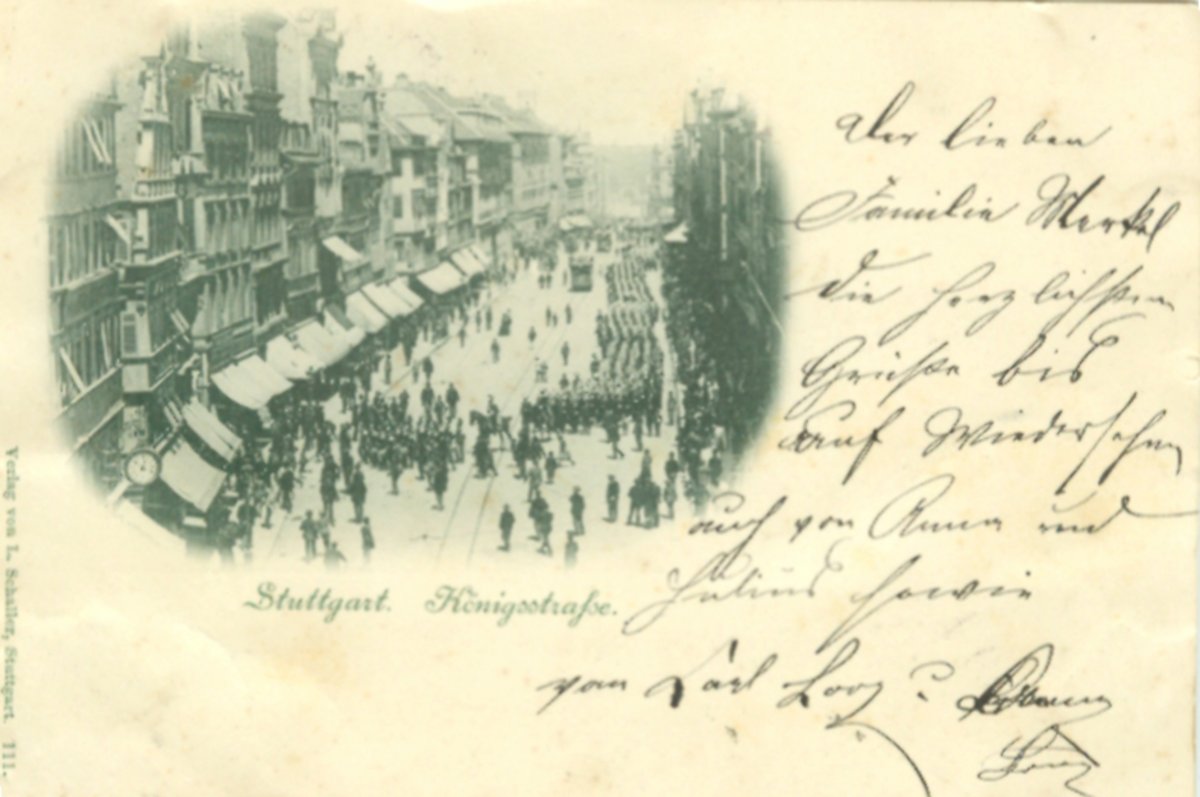 Der lieben
Familie Merkel
die herzlichsten
Grüße bis
auf Wiedersehen
auch von Anna und
Julius sowie
von Carl
Stuttgart. Königsstraße.
Verlag von L. Schaller, Stuttgart. 111.